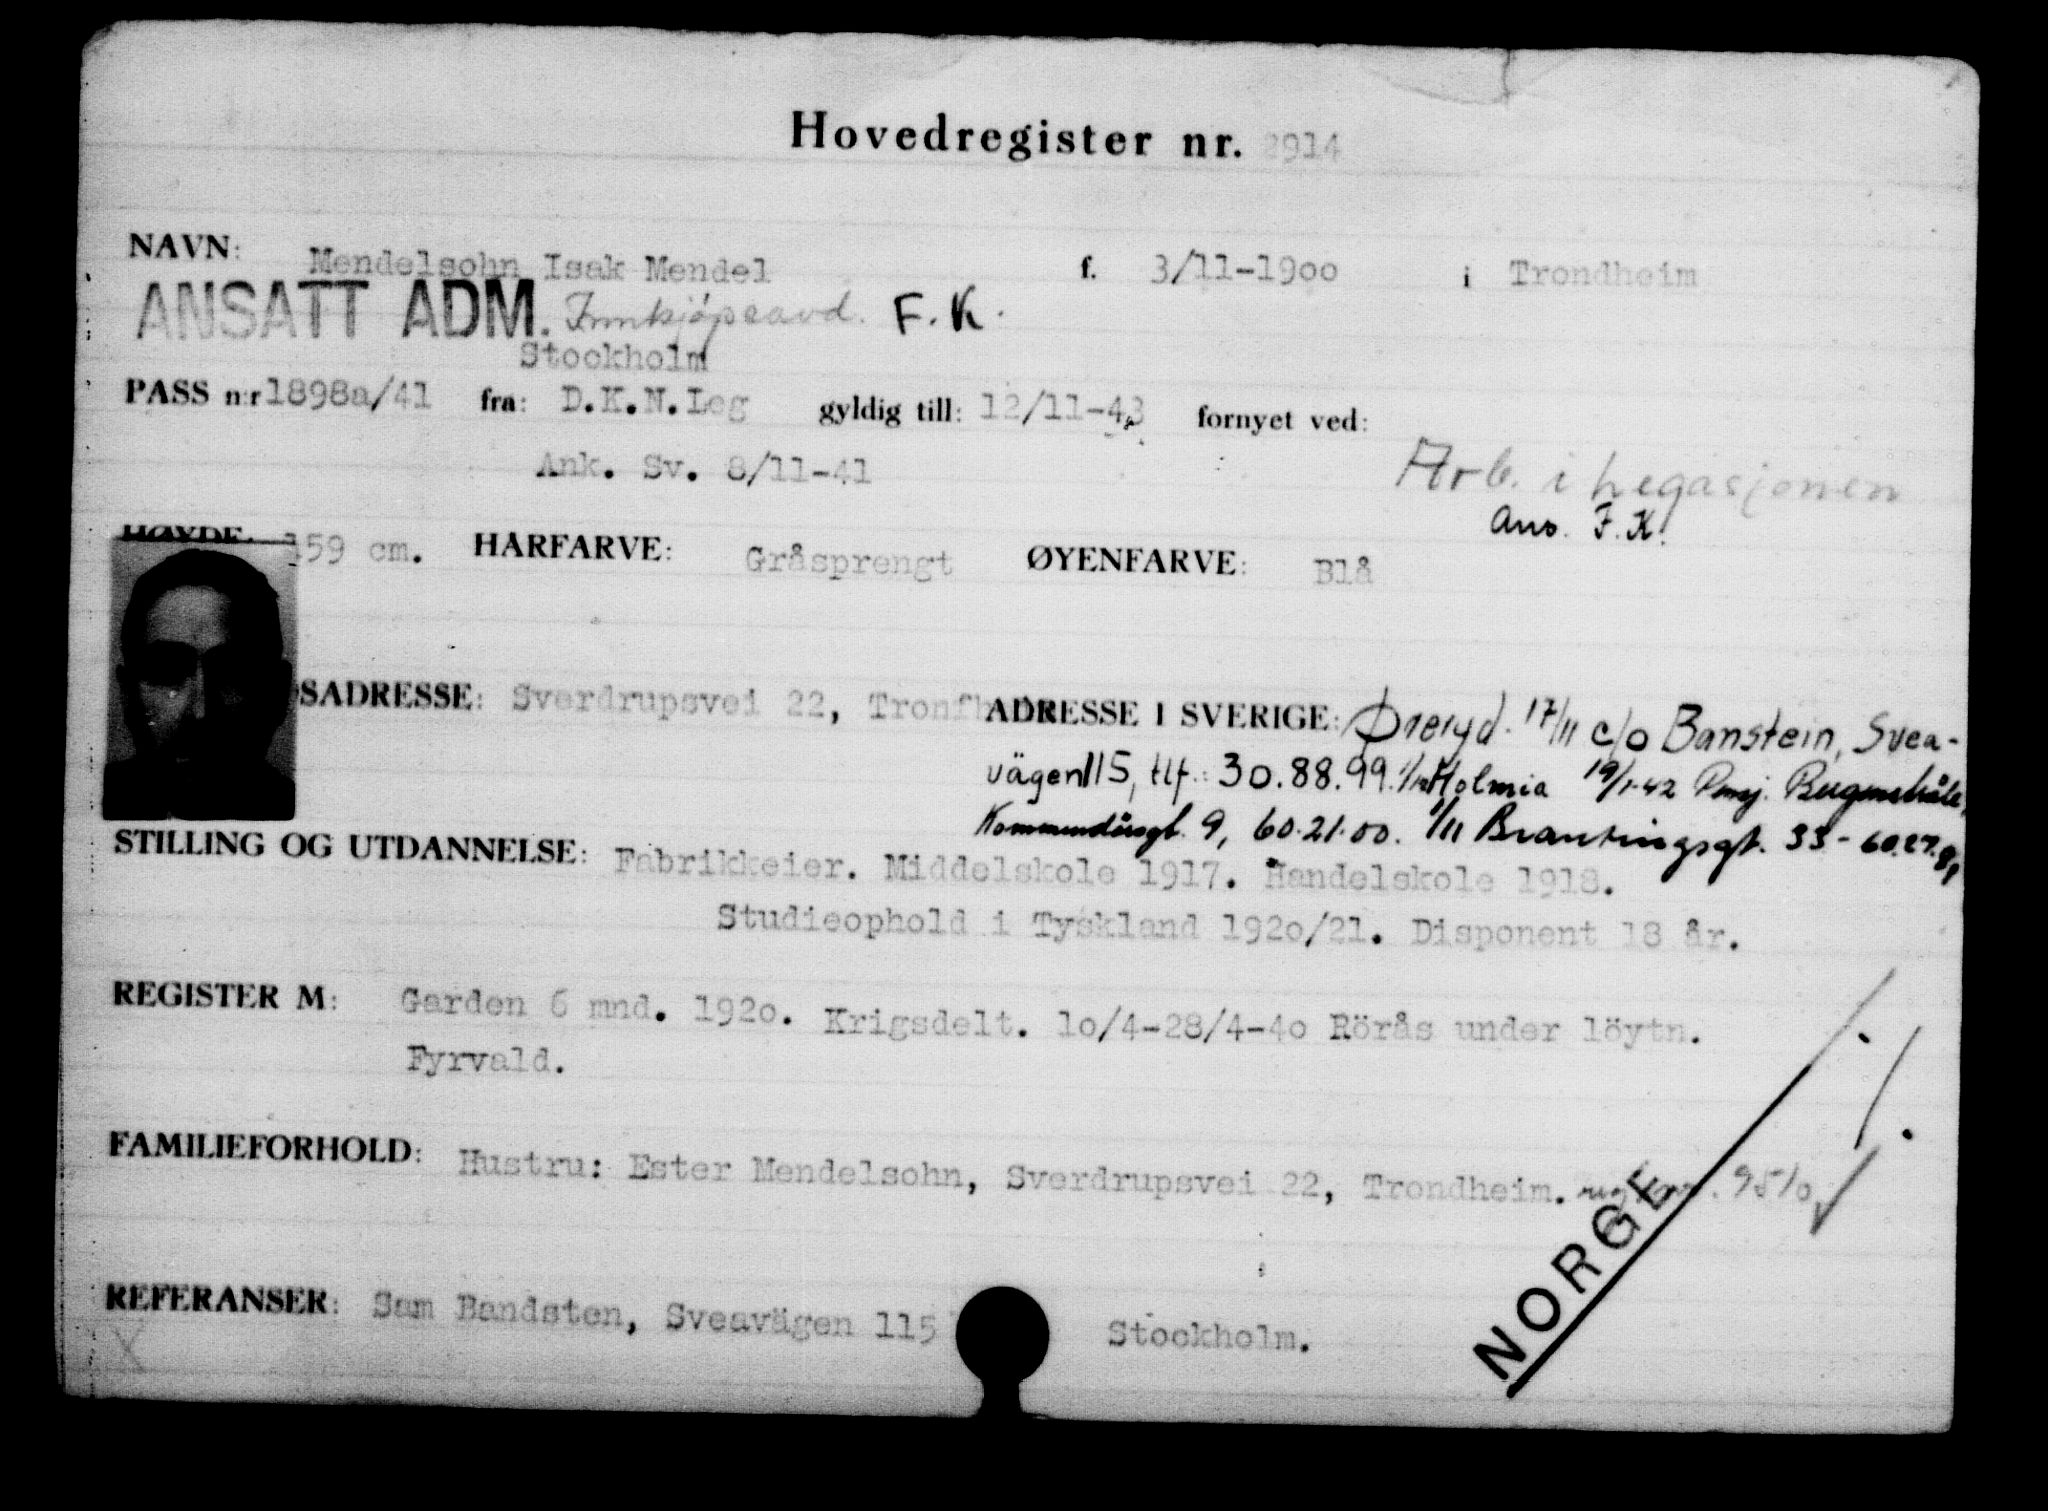 Hovedregister nr. 2914
NAVN: Mendelsohn Isak Mendel f. 3/11-1900 i Trondheim
ANSATT ADM. Innkjøpsavd. F.K.
Stockholm
PASS nr 1898a/41 fra: D.K.N.Leg gyldig till: 12/11-43 fornyet ved:
Ank. Sv. 8/11-41
Arb. i Legasjonen
Ans. F.K.
HØYDE: 159 cm. HÅRFARVE: Gråsprengt ØYENFARVE: Blå
SADRESSE: Sverdrupsvei 22, ADRESSE I SVERIGE: Øreryd. 17/11 c/o Banstein, Svea-
vägen 115, tlf.: 30.88.99. 1/12 Holmia 19/1-42 Pensj.
9, 60.21.00. 1/11 Brantingsgt. 33 -
STILLING OG UTDANNELSE: Fabrikkeier. Middelskole 1917. Handelskole 1918.
Studieophold i Tyskland 1920/21. Disponent 18 år.
REGISTER M: Garden 6 mnd. 1920. Krigsdelt. 10/4-28/4-40 Rörås under löytn.
Fyrvald.
FAMILIEFORHOLD: Hustru: Ester Mendelsohn, Sverdrupsvei 22, Trondheim.
REFERANSER: Sam Bandsten, Sveavägen 115 Stockholm.
X
NORGE